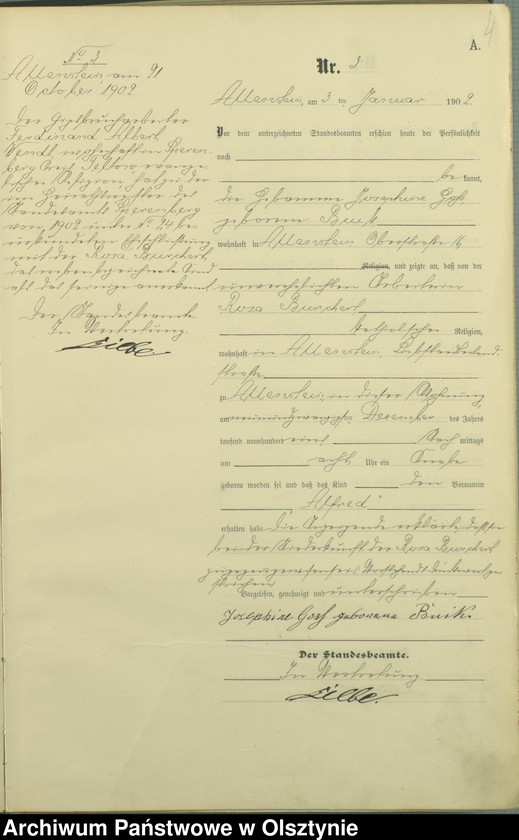 4
A.
Nr. 3
Allenstein, am 3 ten Januar 1902.
Vor dem unterzeichneten Standesbeamten erschien heute der Persönlichkeit
nach
be kannt,
die Hebamme Josephine
geborene Buik
wohnhaft in Allenstein Oberstrasse
Religion, und zeigte an, daß von der
unverehelichten Arbeiterin
Rosa Burchert
katholischer Religion,
wohnhaft in Allenstein,
strasse
zu Allenstein in dieser Wohnung,
am neunundzwanzigsten December des Jahres
tausend neunhundert eins Nach mittags
um acht Uhr ein Knabe
geboren worden sei und daß das Kind den Vornamen
"Alfred"
erhalten habe. Die Anzeigende erklärte, daß sie
bei der Niederkunft der Rosa Burchert
zugegen gewesen sei. Vorstehend Druckworte
gestrichen
Vorgelesen, genehmigt und unterschrieben
Josephine geborene Buik.
Der Standesbeamte.
In Vertretung
Lilbe.
No 3
Allenstein am 21
October 1902
Der
Ferdinand Albert
Wendt, wohnhaft in Sperenberg
Kreis Teltow, evangelischer
Religion, hat in der
im Heirathsregister des
Standesamts Sperenberg
vom 1902 unter No 21 beurkundeten
Eheschließung
mit der Rosa Burchert,
das nebenbezeichnete Kind
als das seinige anerkannt.
Der Standesbeamte
In Vertretung.
Lilbe
Archiwum Państwowe w Olsztynie